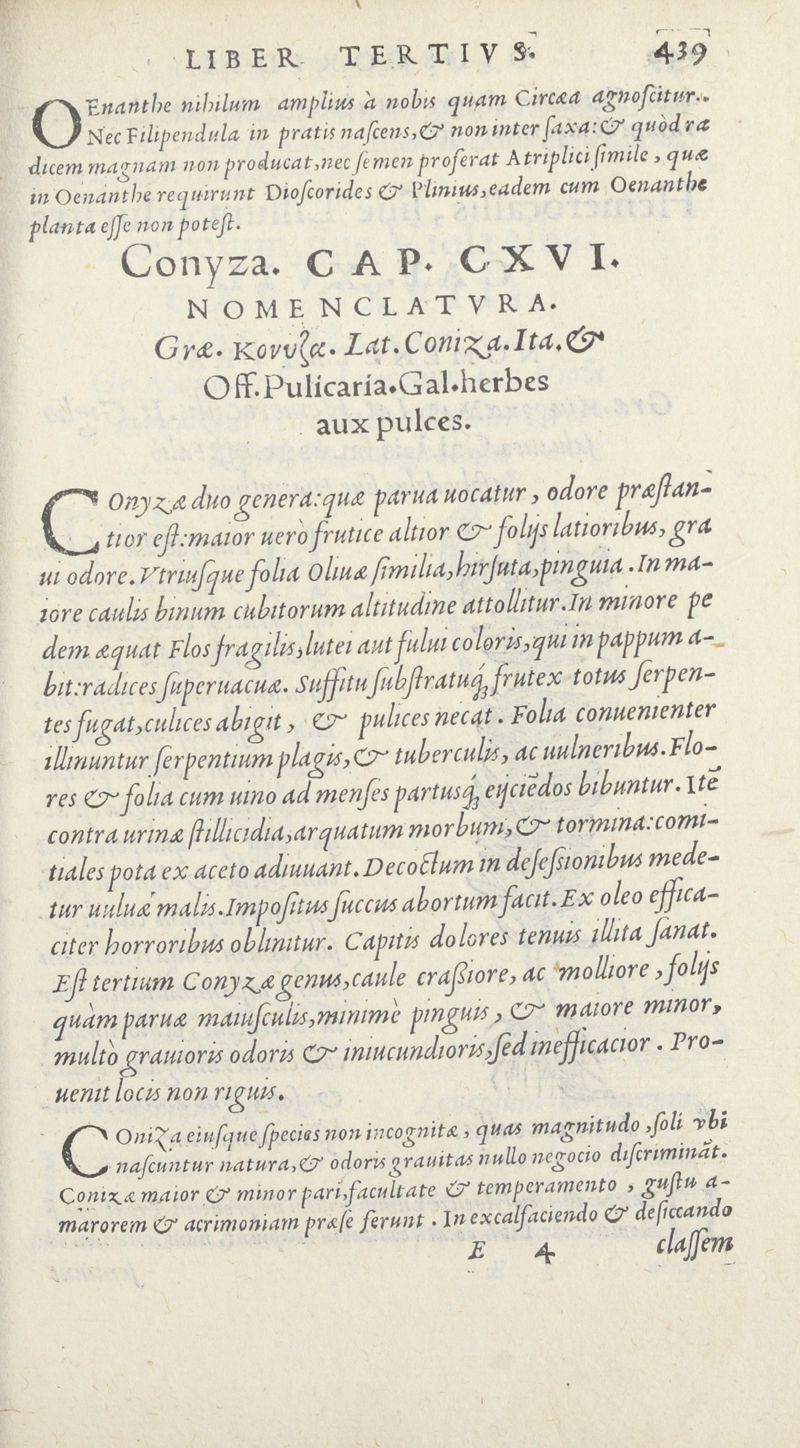 LIBER TERTIVS. 439
OEnanthe nihilum amplius à nobis quam Circæa agnoſcitur.
Nec Filipendula in pratis naſcens, & non inter ſaxa: & quòd ra
dicem magnam non producat, nec ſemen proferat Atriplici ſimile, quæ
in Oenanthe requirunt Dioſcorides & Plinius, eadem cum Oenanthe
planta eſſe non poteſt.
Conyza. CAP. CXVI.
NOMENCLATVRA.
Græ. Κονυζα. Lat. Coniza. Ita. &
Off. Pulicaria. Gal. herbes
aux pulces.
COnyzæ duo genera: quæ parua uocatur, odore præſtan-
tior eſt: maior uerò frutice altior & folijs latioribus, gra
ui odore. Vtriuſque folia Oliuæ ſimilia, hirſuta, pinguia. In ma-
iore caulis binum cubitorum altitudine attollitur. In minore pe
dem æquat Flos fragilis, lutei aut fului coloris, qui in pappum a-
bit: radices ſuperuacuæ. Suffitu ſubſtratuq́; frutex totus ſerpen-
tes fugat, culices abigit, & pulices necat. Folia conuenienter
illinuntur ſerpentium plagis, & tuberculis, ac uulneribus. Flo-
res & folia cum uino ad menſes partusq́; eijciẽdos bibuntur. Itẽ
contra urinæ ſtillicidia, arquatum morbum, & tormina: comi-
tiales pota ex aceto adiuuant. Decoctum in deſeſsionibus mede-
tur uuluæ malis. Impoſitus ſuccus abortum facit. Ex oleo effica-
citer horroribus oblinitur. Capitis dolores tenuis illita ſanat.
Eſt tertium Conyzæ genus, caule craſsiore, ac molliore, folijs
quàm paruæ maiuſculis, minimè pinguis, & maiore minor,
multò grauioris odoris & iniucundioris, ſed inefficacior. Pro-
uenit locis non riguis.
COniza eiuſque ſpecies non incognitæ, quas magnitudo, ſoli vbi
naſcuntur natura, & odoris grauitas nullo negocio diſcriminat.
Conizæ maior & minor pari, facultate & temperamento, guſtu a-
marorem & acrimoniam præſe ferunt. In excalfaciendo & deſiccando
E 4 claſſem